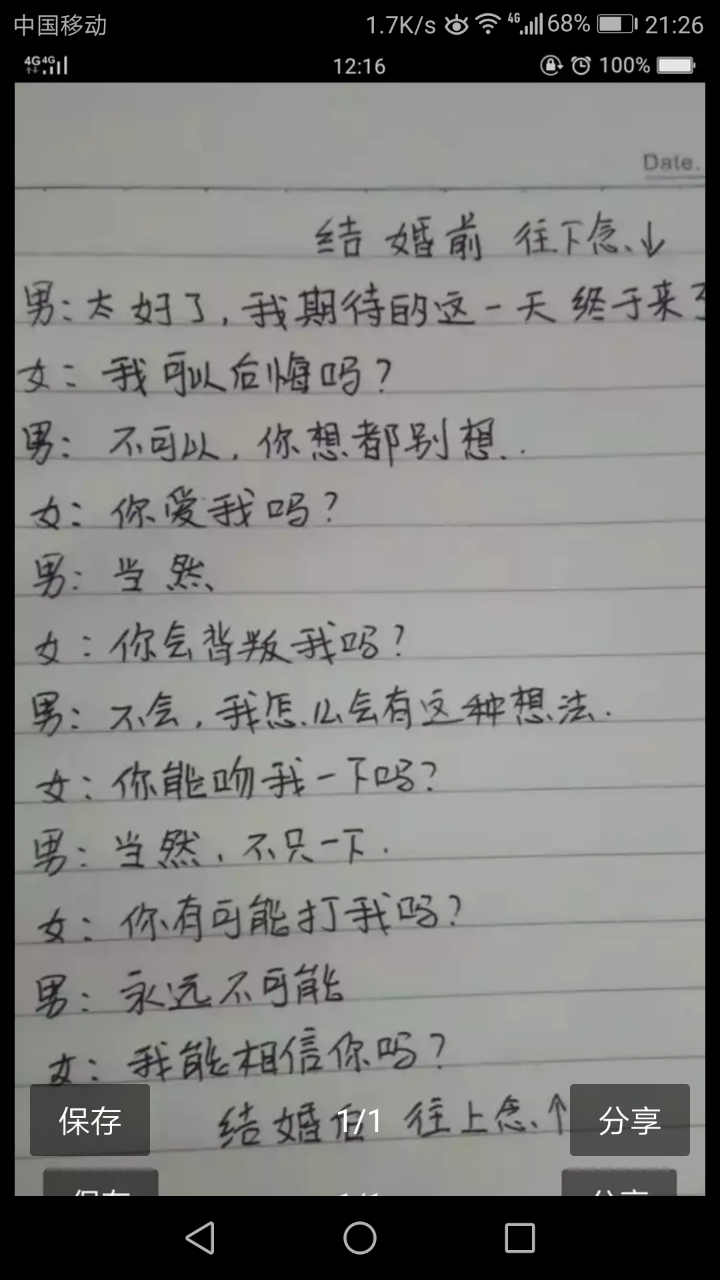 中国移动 1.7K/s 4G 68% 21:26
4G 4G 12:16 100%
Date.
结婚前 往下念、↓
男：太好了，我期待的这一天终于来了
女：我可以后悔吗？
男：不可以，你想都别想..
女：你爱我吗？
男：当然、
女：你会背叛我吗？
男：不会，我怎么会有这种想法.
女：你能吻我一下吗？
男：当然，不只一下.
女：你有可能打我吗？
男：永远不可能
女：我能相信你吗？
保存 1/1 分享
结婚后 往上念、↑
保存 1/1 分享